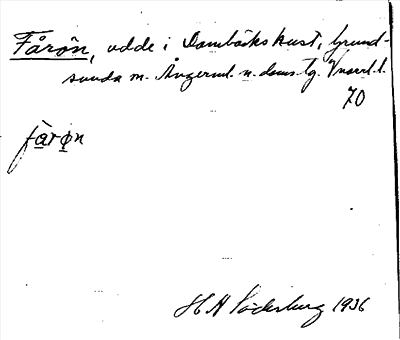 Fårön, udde i Dombäcks kust, Grund-
sunda sn. Ångerml. n. doms.tg. Vnorrl. l.
70
fàrøn
H A Söderburg 1936